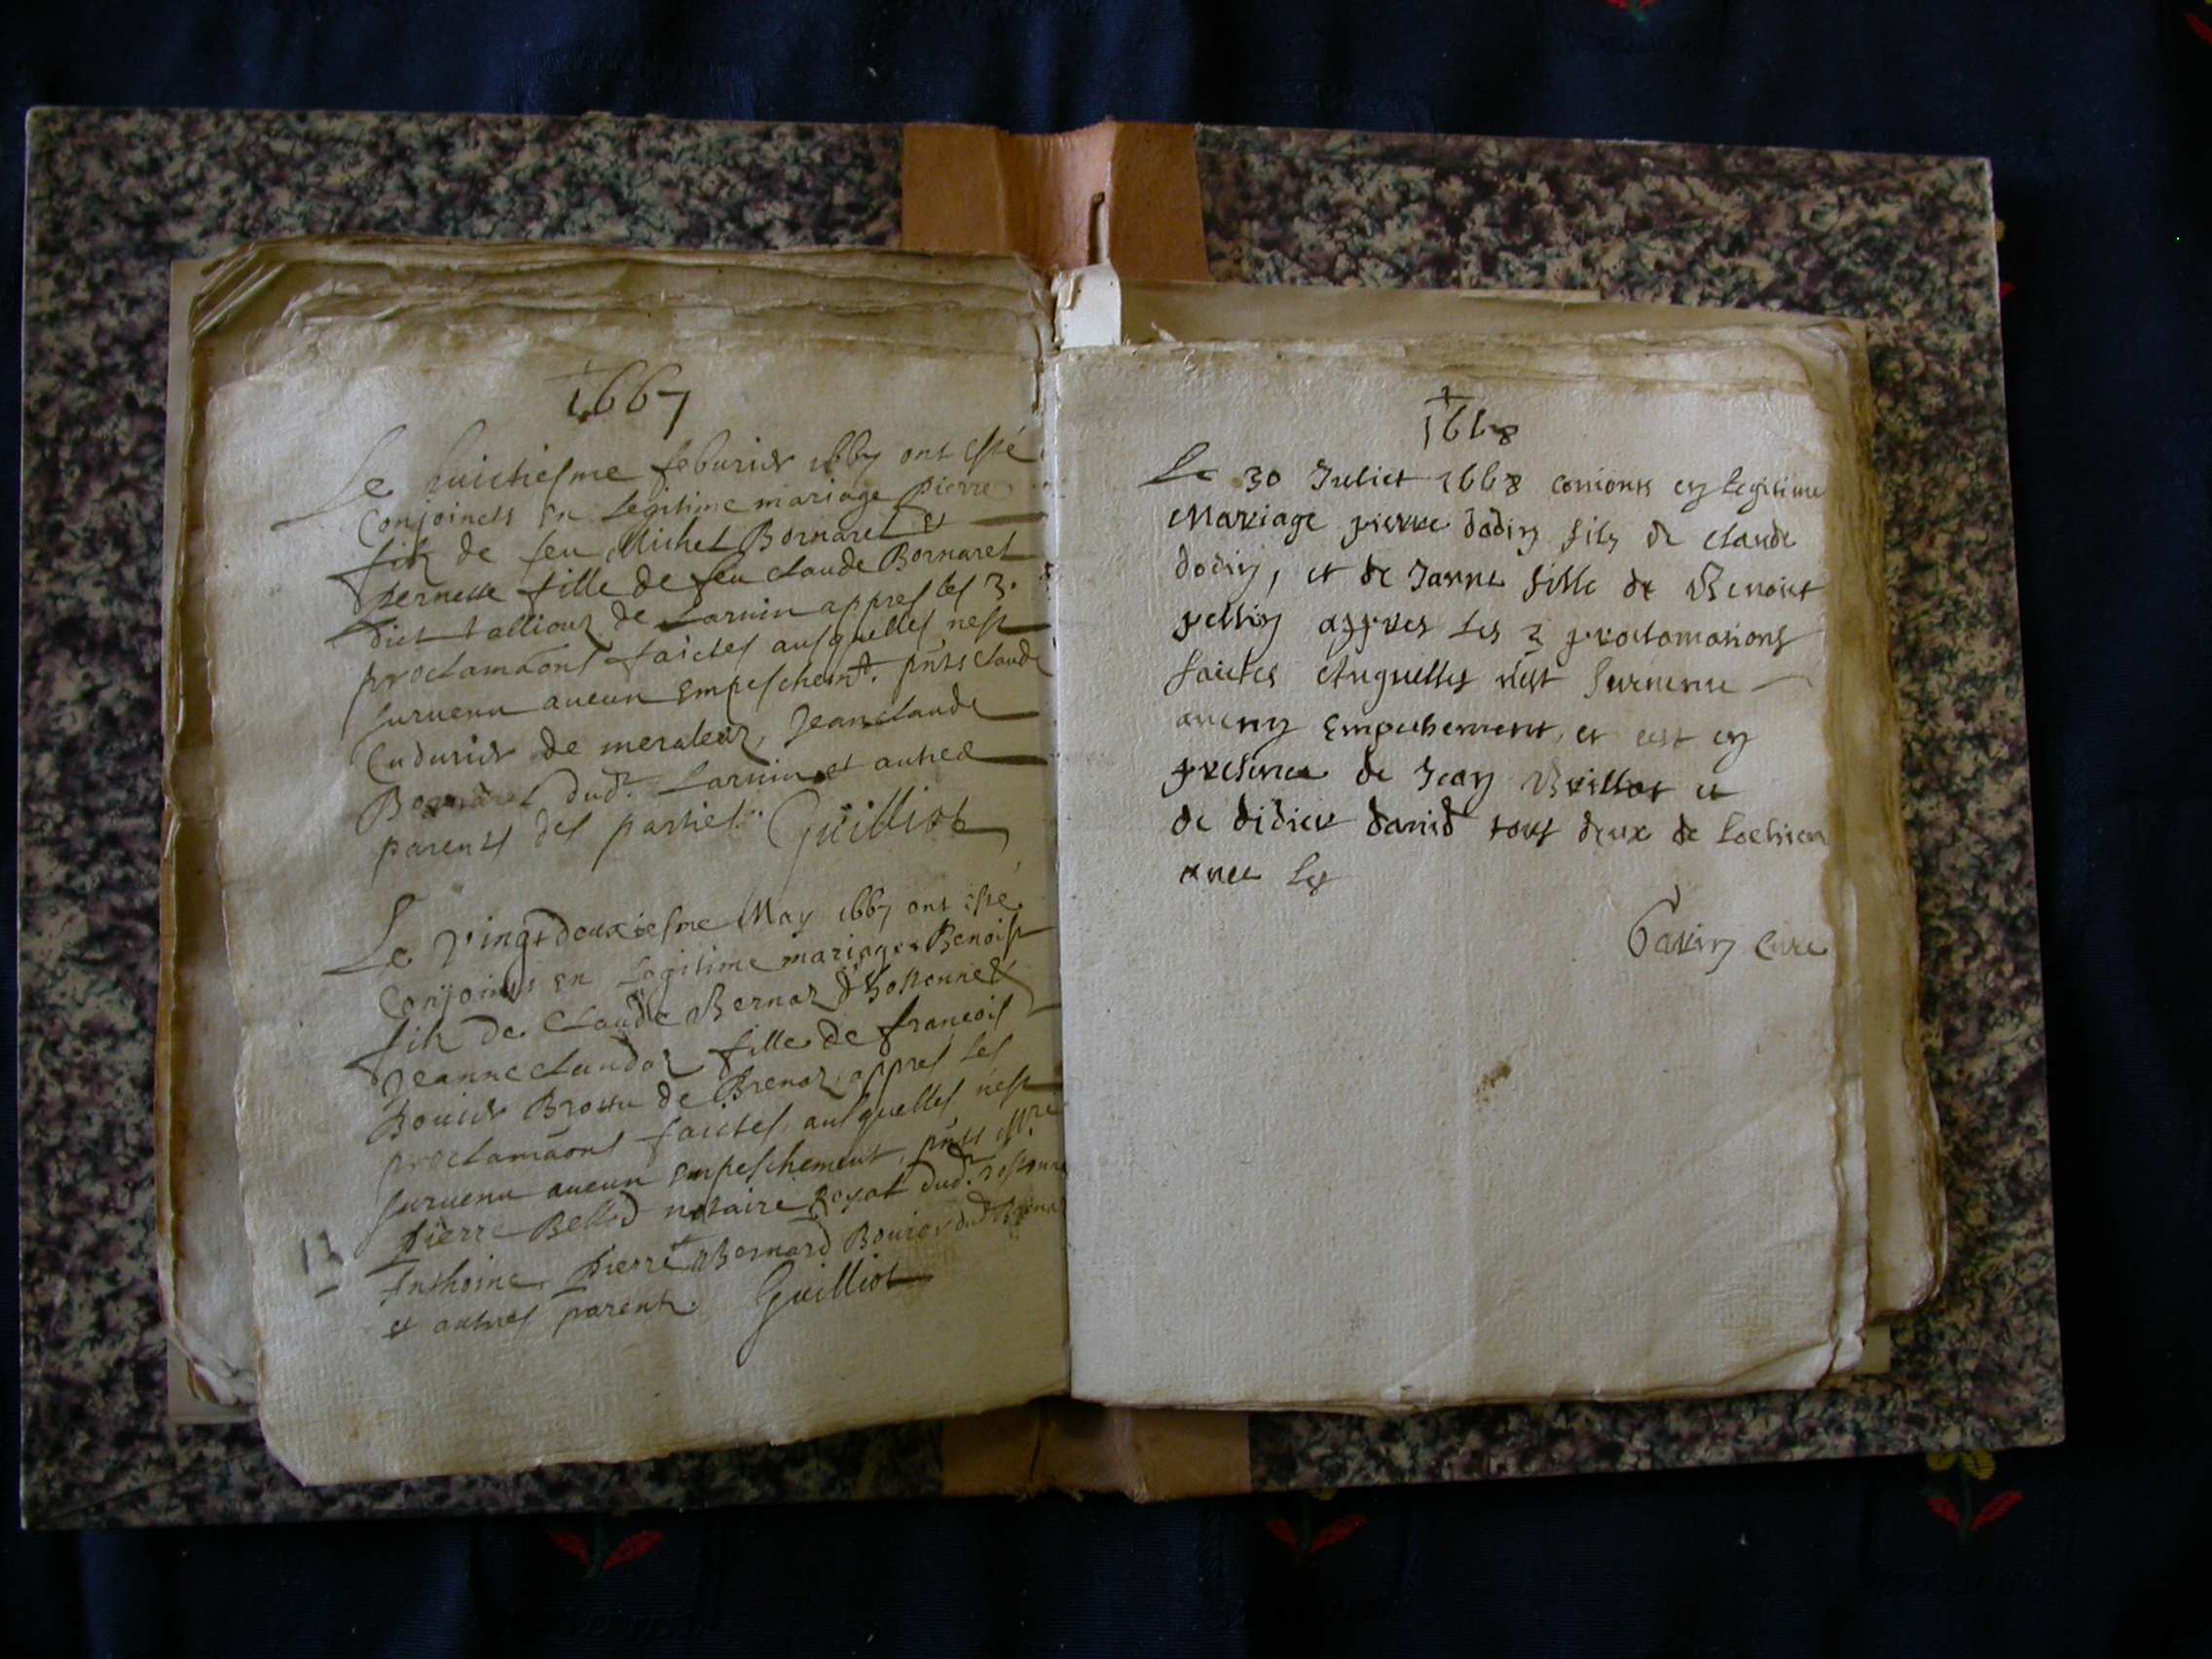 1667
Le huictiesme feburier 1667 ont esté
Conjoincts en Legitime mariage pierre
filz de feu Michel Bornarel et
pernette fille de feu claude Bornarel
dict tallion de Larnin appres les 3.
proclamaõns faictes ausquelles nest
suruenu aucun Empeschemt. pñts claude
Cudurier de meraleaz, Jean claude
Bornarel dud. Larnin et autres
parents des parties. Guilliot
Le vingtdeuxiesme May 1667 ont esté
Conjoincts en Legitime mariage Benoist
filz de Claude Bernar et
Jeanne claudaz fille de francois
Bouier Brossu de Brenaz, appres les
proclamaõns faictes, ausquelles nest
suruenu aucun Empeschement, pñts Mre
pierre Belled notaire Royal dud.
Anthoine pierre et Bernard Bouier dud Brenaz
et autres parents. Guilliot
13
1668
Le 30 Juliet 1668 conionts en Legitime
Mariage pierre dodin fils de claude
dodin, et de Janne fille de Benoict
peltin appres Les 3 proclamations
faictes Auquelles n'est suruenu
aucun Empechement, et cest en
presence de Jean Brillat et
de didier dauid tous deux de Lochieu
auec
Cure